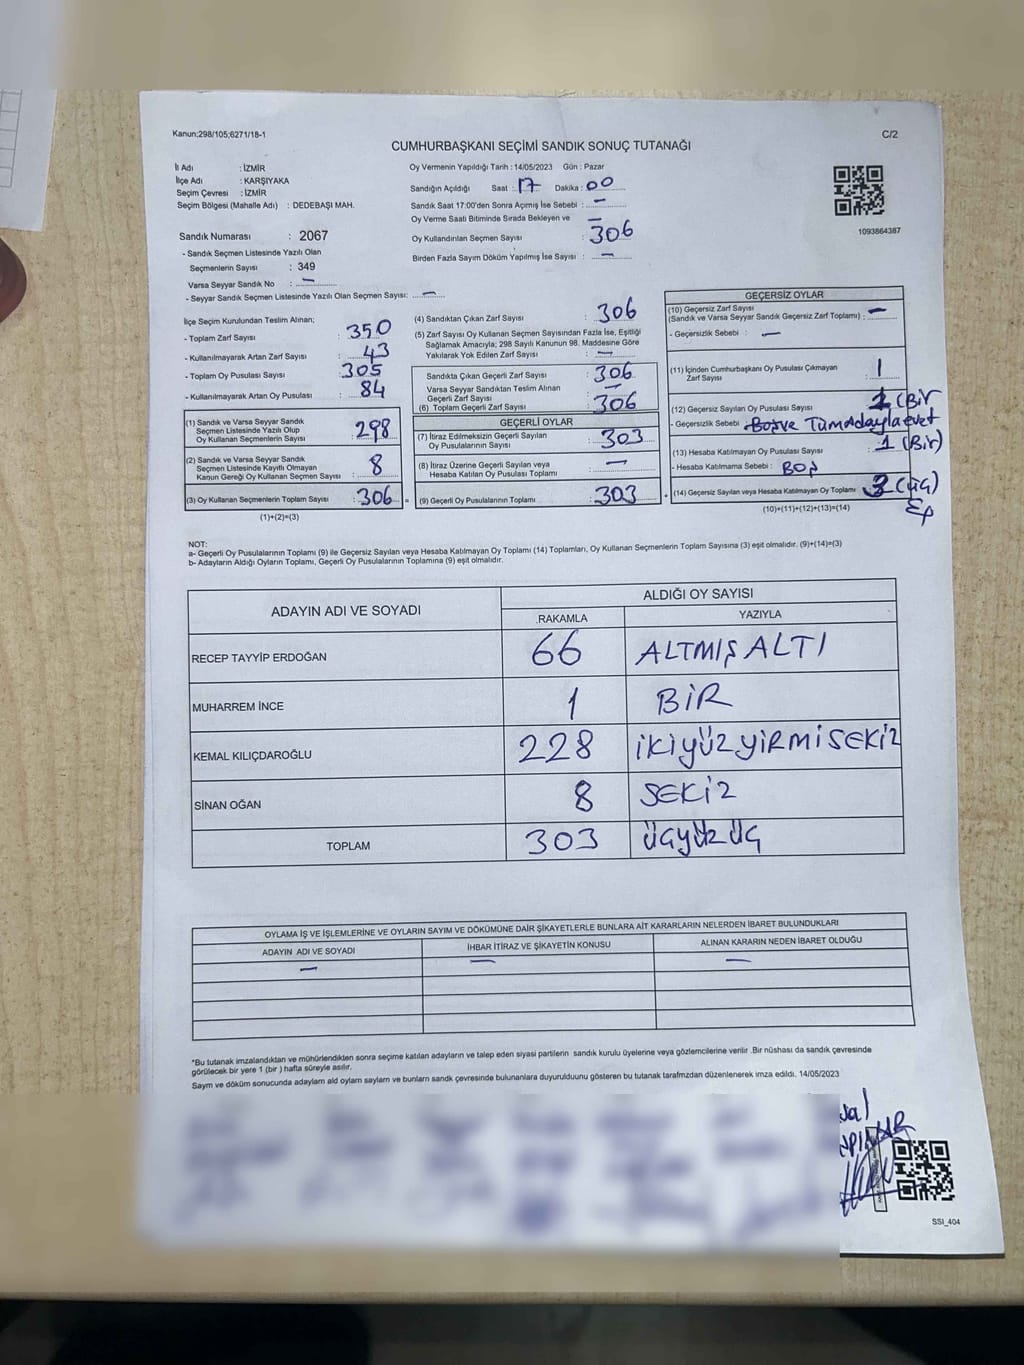 Kanun;298/105;6271/18-1
C/2
CUMHURBAŞKANI SEÇİMİ SANDIK SONUÇ TUTANAĞI
İl Adı : İZMİR
İlçe Adı : KARŞIYAKA
Seçim Çevresi : İZMİR
Seçim Bölgesi (Mahalle Adı) : DEDEBAŞI MAH.
Sandık Numarası : 2067
- Sandık Seçmen Listesinde Yazılı Olan
Seçmenlerin Sayısı : 349
Varsa Seyyar Sandık No : —
- Seyyar Sandık Seçmen Listesinde Yazılı Olan Seçmen Sayısı: —
Oy Vermenin Yapıldığı Tarih : 14/05/2023 Gün : Pazar
Sandığın Açıldığı Saat : 17 Dakika : 00
Sandık Saat 17:00'den Sonra Açımış İse Sebebi : —
Oy Verme Saati Bitiminde Sırada Bekleyen ve —
Oy Kullandırılan Seçmen Sayısı : 306
Birden Fazla Sayım Döküm Yapılmış İse Sayısı : —
1093864387
İlçe Seçim Kurulundan Teslim Alınan;
- Toplam Zarf Sayısı : 350
- Kullanılmayarak Artan Zarf Sayısı : 43
- Toplam Oy Pusulası Sayısı : 305
- Kullanılmayarak Artan Oy Pusulası : 84
(1) Sandık ve Varsa Seyyar Sandık
Seçmen Listesinde Yazılı Olup
Oy Kullanan Seçmenlerin Sayısı : 298
(2) Sandık ve Varsa Seyyar Sandık
Seçmen Listesinde Kayıtlı Olmayan
Kanun Gereği Oy Kullanan Seçmen Sayısı : 8
(3) Oy Kullanan Seçmenlerin Toplam Sayısı : 306 =
(1)+(2)=(3)
(4) Sandıktan Çıkan Zarf Sayısı : 306
(5) Zarf Sayısı Oy Kullanan Seçmen Sayısından Fazla İse, Eşitliği
Sağlamak Amacıyla; 298 Sayılı Kanunun 98. Maddesine Göre
Yakılarak Yok Edilen Zarf Sayısı : —
Sandıkta Çıkan Geçerli Zarf Sayısı : 306
Varsa Seyyar Sandıktan Teslim Alınan
Geçerli Zarf Sayısı : —
(6) Toplam Geçerli Zarf Sayısı : 306
GEÇERLİ OYLAR
(7) İtiraz Edilmeksizin Geçerli Sayılan
Oy Pusulalarının Sayısı : 303
(8) İtiraz Üzerine Geçerli Sayılan veya
Hesaba Katılan Oy Pusulası Toplamı : —
(9) Geçerli Oy Pusulalarının Toplamı : 303 +
GEÇERSİZ OYLAR
(10) Geçersiz Zarf Sayısı
(Sandık ve Varsa Seyyar Sandık Geçersiz Zarf Toplamı) : —
- Geçersizlik Sebebi : —
(11) İçinden Cumhurbaşkanı Oy Pusulası Çıkmayan
Zarf Sayısı : 1
(12) Geçersiz Sayılan Oy Pusulası Sayısı : 1 (Bir
- Geçersizlik Sebebi : Boş ve Tüm Adaylara evet
(13) Hesaba Katılmayan Oy Pusulası Sayısı : 1 (Bir)
- Hesaba Katılmama Sebebi : BOŞ
(14) Geçersiz Sayılan veya Hesaba Katılmayan Oy Toplamı : 3 (üç)
(10)+(11)+(12)+(13)=(14)
NOT:
a- Geçerli Oy Pusulalarının Toplamı (9) ile Geçersiz Sayılan veya Hesaba Katılmayan Oy Toplamı (14) Toplamları, Oy Kullanan Seçmenlerin Toplam Sayısına (3) eşit olmalıdır. (9)+(14)=(3)
b- Adayların Aldığı Oyların Toplamı, Geçerli Oy Pusulalarının Toplamına (9) eşit olmalıdır.
ADAYIN ADI VE SOYADI ALDIĞI OY SAYISI
.RAKAMLA YAZIYLA
RECEP TAYYİP ERDOĞAN 66 ALTMIŞ ALTI
MUHARREM İNCE 1 BİR
KEMAL KILIÇDAROĞLU 228 İKİYÜZ YİRMİ SEKİZ
SİNAN OĞAN 8 SEKİZ
TOPLAM 303 ÜÇYÜZ ÜÇ
OYLAMA İŞ VE İŞLEMLERİNE VE OYLARIN SAYIM VE DÖKÜMÜNE DAİR ŞİKAYETLERLE BUNLARA AİT KARARLARIN NELERDEN İBARET BULUNDUKLARI
ADAYIN ADI VE SOYADI İHBAR İTİRAZ VE ŞİKAYETİN KONUSU ALINAN KARARIN NEDEN İBARET OLDUĞU
— — —
*Bu tutanak imzalandıktan ve mühürlendikten sonra seçime katılan adayların ve talep eden siyasi partilerin sandık kurulu üyelerine veya gözlemcilerine verilir .Bir nüshası da sandık çevresinde
görülecek bir yere 1 (bir ) hafta süreyle asılır.
Sayım ve döküm sonucunda adaylarn ald oylarn saylarn ve bunlarn sandk çevresinde bulunanlara duyurulduunu gösteren bu tutanak tarafmzdan düzenlenerek imza edildi. 14/05/2023
SSI_404